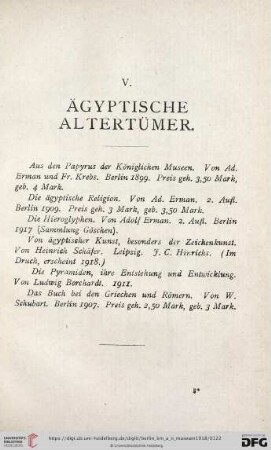 V.
ÄGYPTISCHE
ALTERTÜMER.
Aus den Papyrus der Königlichen Museen. Von Ad.
Erman und Fr. Krebs. Berlin 1899. Preis geh. 3,50 Mark,
geb. 4 Mark.
Die ägyptische Religion. Von Ad. Erman. 2. Aufl.
Berlin 1909. Preis geh. 3 Mark, geb. 3,50 Mark.
Die Hieroglyphen. Von Adolf Erman. 2. Aufl. Berlin
1917 (Sammlung Göschen).
Von ägyptischer Kunst, besonders der Zeichenkunst.
Von Heinrich Schäfer. Leipzig. J. C. Hinrichs. (Im
Druck, erscheint 1918.)
Die Pyramiden, ihre Entstehung und Entwicklung.
Von Ludwig Borchardt. 1911.
Das Buch bei den Griechen und Römern. Von W.
Schubart. Berlin 1907. Preis geh. 2,50 Mark, geb. 3 Mark.
8*
UNIVERSITÄTS-
BIBLIOTHEK
HEIDELBERG
https://digi.ub.uni-heidelberg.de/diglit/berlin_km_a_n_museum1918/0122
Gefördert durch die
DFG